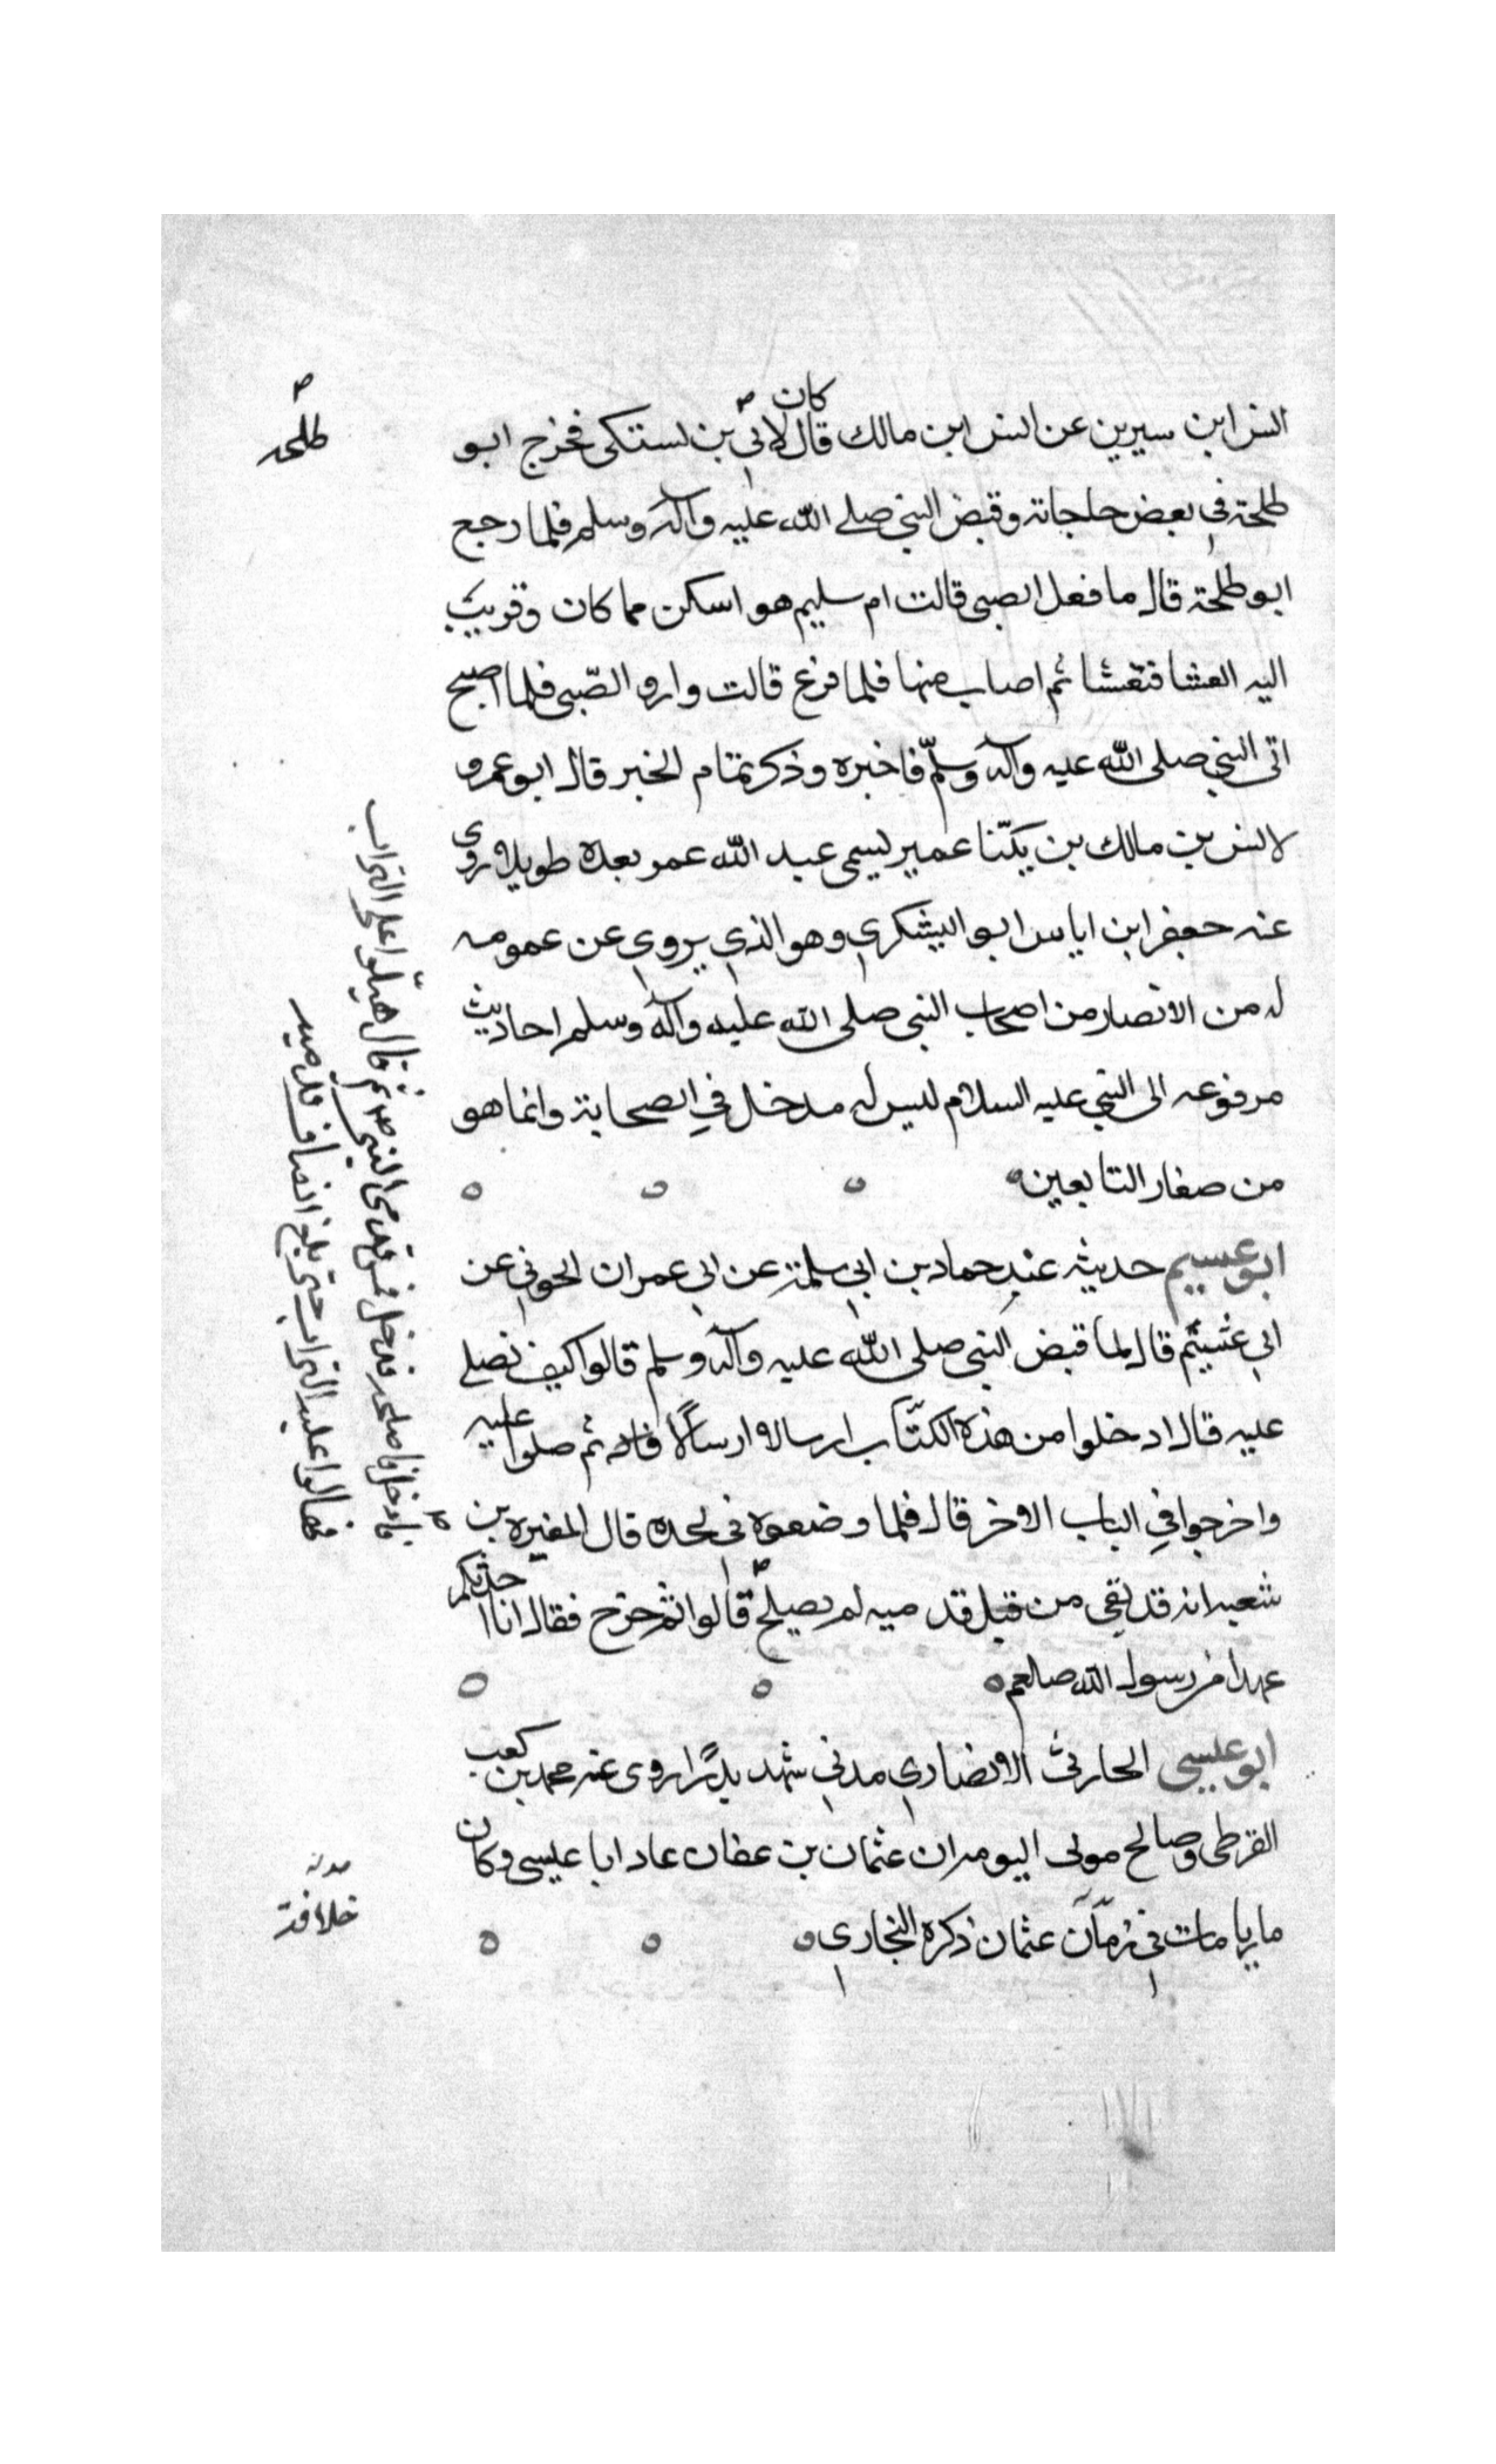 كان
انس ابن سيرين عن انس ابن مالك قال لابي بن يستكى فخرج ابو
طلحة في بعض حاجاته وقبض النبي صلى الله عليه وآله وسلم فلما رجع
ابو طلحة قال ما فعل الصبى قالت ام سليم هو اسكن مما كان وقربت
اليه العشا فتعشا ثم اصاب منها فلما فرغ قالت وارو الصّبى فلما اصبح
اتى النبي صلى الله عليه وآله وسلّم فاخبره وذكر تمام الخبر قال ابو عمرو
لانس بن مالك بن يكنّا عمير يسمى عبد الله عمر بعده طويلا روى
عنه جعفر ابن اياس ابو اليشكري وهو الذي يروى عن عمومه
له من الانصار من اصحاب النبى صلى الله عليه وآله وسلم احاديث
مرفوعه الى النبي عليه السلام ليس له مدخل في الصحابة وانما هو
من صغار التابعين
ابو عسيم حديثه عند حماد بن ابي سلمة عن ابي عمران الجوني عن
ابي عشيثم قال لما قبض النبى صلى الله عليه وآله وسلم قالوا كيف نصلى
عليه قال ادخلوا من هذه الكتاب ارسالا ارسالًا ثم صلوا عليه
واخرجوا في الباب الاخر قال فلما وضعوه في لحده قال المغيره بن
شعبه انه قد بقى من قبل قدميه لم يصلح قالوا ثم خرج فقال انا احدثكم
عهدا من رسول الله صلعم
ابو عيسى الحارثى الانصاري مدني شهد بدرًا روى عنه محمد بن كعب
القرظى وصالح مولى اليومران عثمان بن عفان عاد ابا عيسى وكان
ماريا مات في زمان عثمان ذكره البخاري
طلحه
فادخل فاصلحه فدخل فمس قدمى النبى ص ثم قال هيلوا على التراب
فهالوا عليه التراب حتى بلغ انصاف قدميه
خلافة